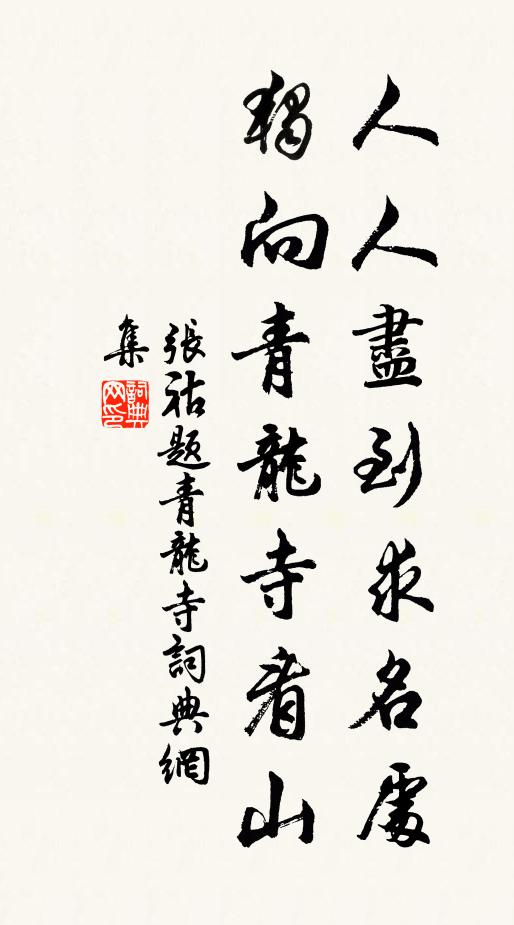 人人盡到求名處
獨向青龍寺看山
張祜題青龍寺詞典網
集
詞典
网印